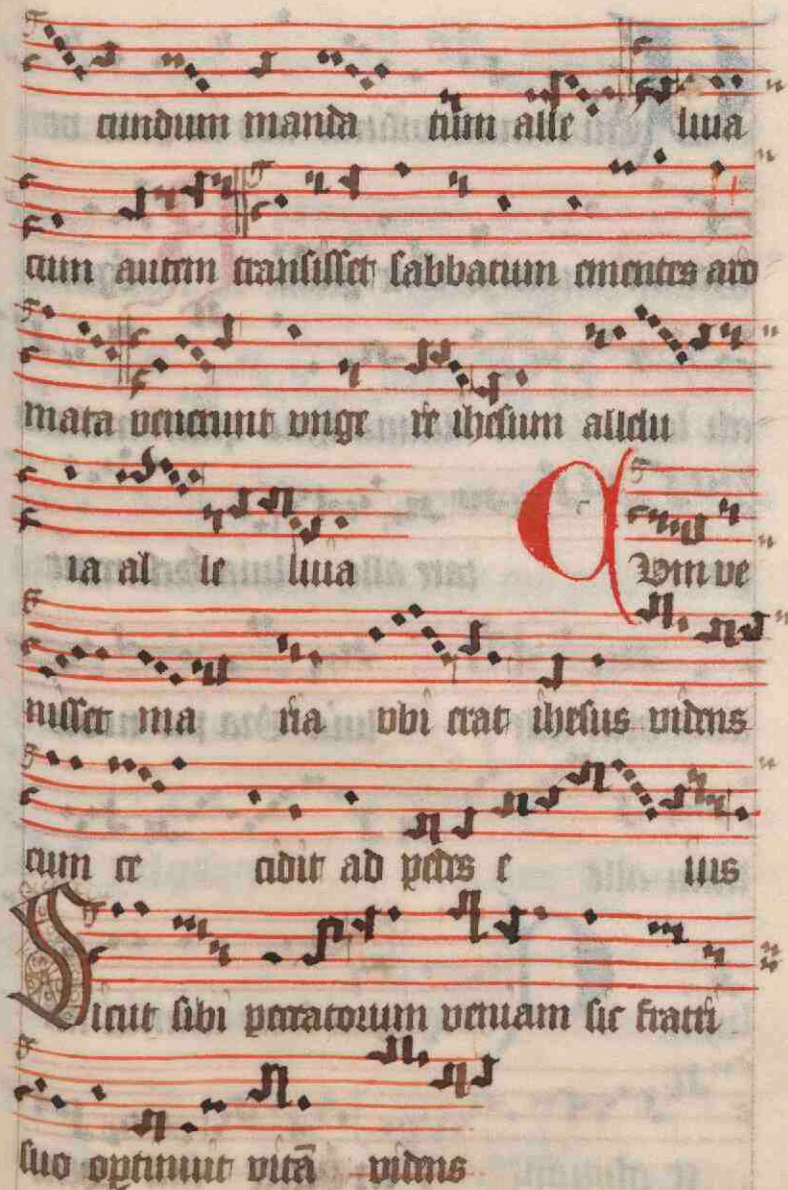 cundum manda tum alle luia
cum autem transisset sabbatum ementes aro
mata venerunt vnge re ihesum allelu
ia al le luia Cum ve
nisset ma ria vbi erat ihesus videns
cum ce cidit ad pedes e ius
Sicut sibi peccatorum veniam sic fratri
suo optinuit vitā videns